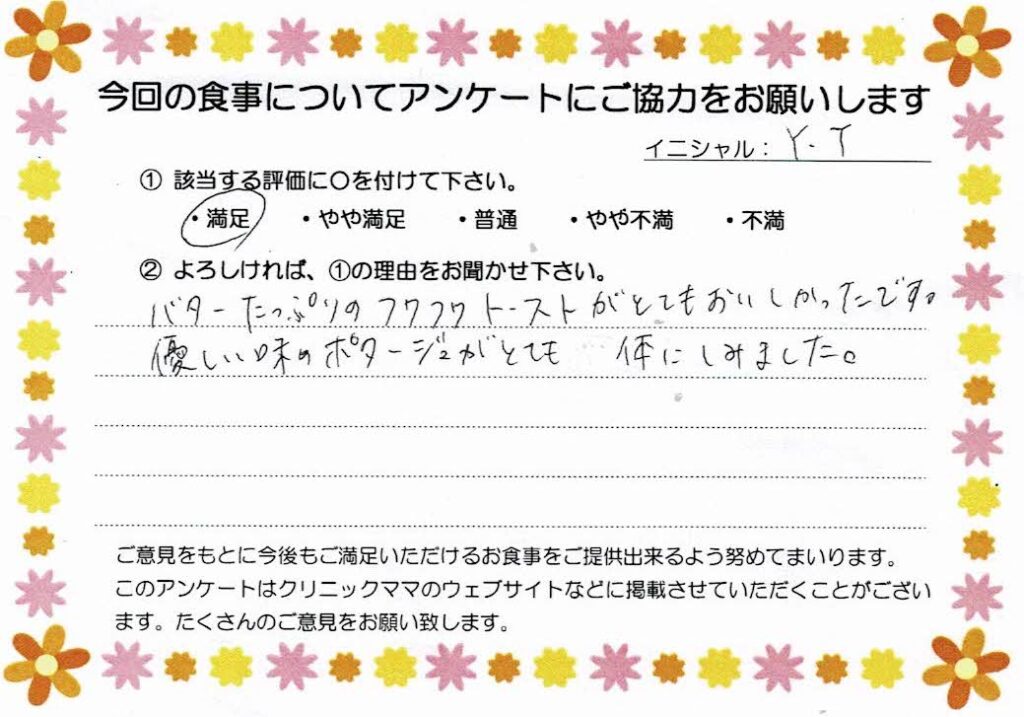 今回の食事についてアンケートにご協力をお願いします
イニシャル：Y.T
① 該当する評価に〇を付けて下さい。
・満足 ・やや満足 ・普通 ・やや不満 ・不満
② よろしければ、①の理由をお聞かせ下さい。
バターたっぷりのフワフワトーストがとてもおいしかったです。
優しい味のポタージュがとても 体にしみました。
ご意見をもとに今後もご満足いただけるお食事をご提供出来るよう努めてまいります。
このアンケートはクリニックママのウェブサイトなどに掲載させていただくことがござい
ます。たくさんのご意見をお願い致します。